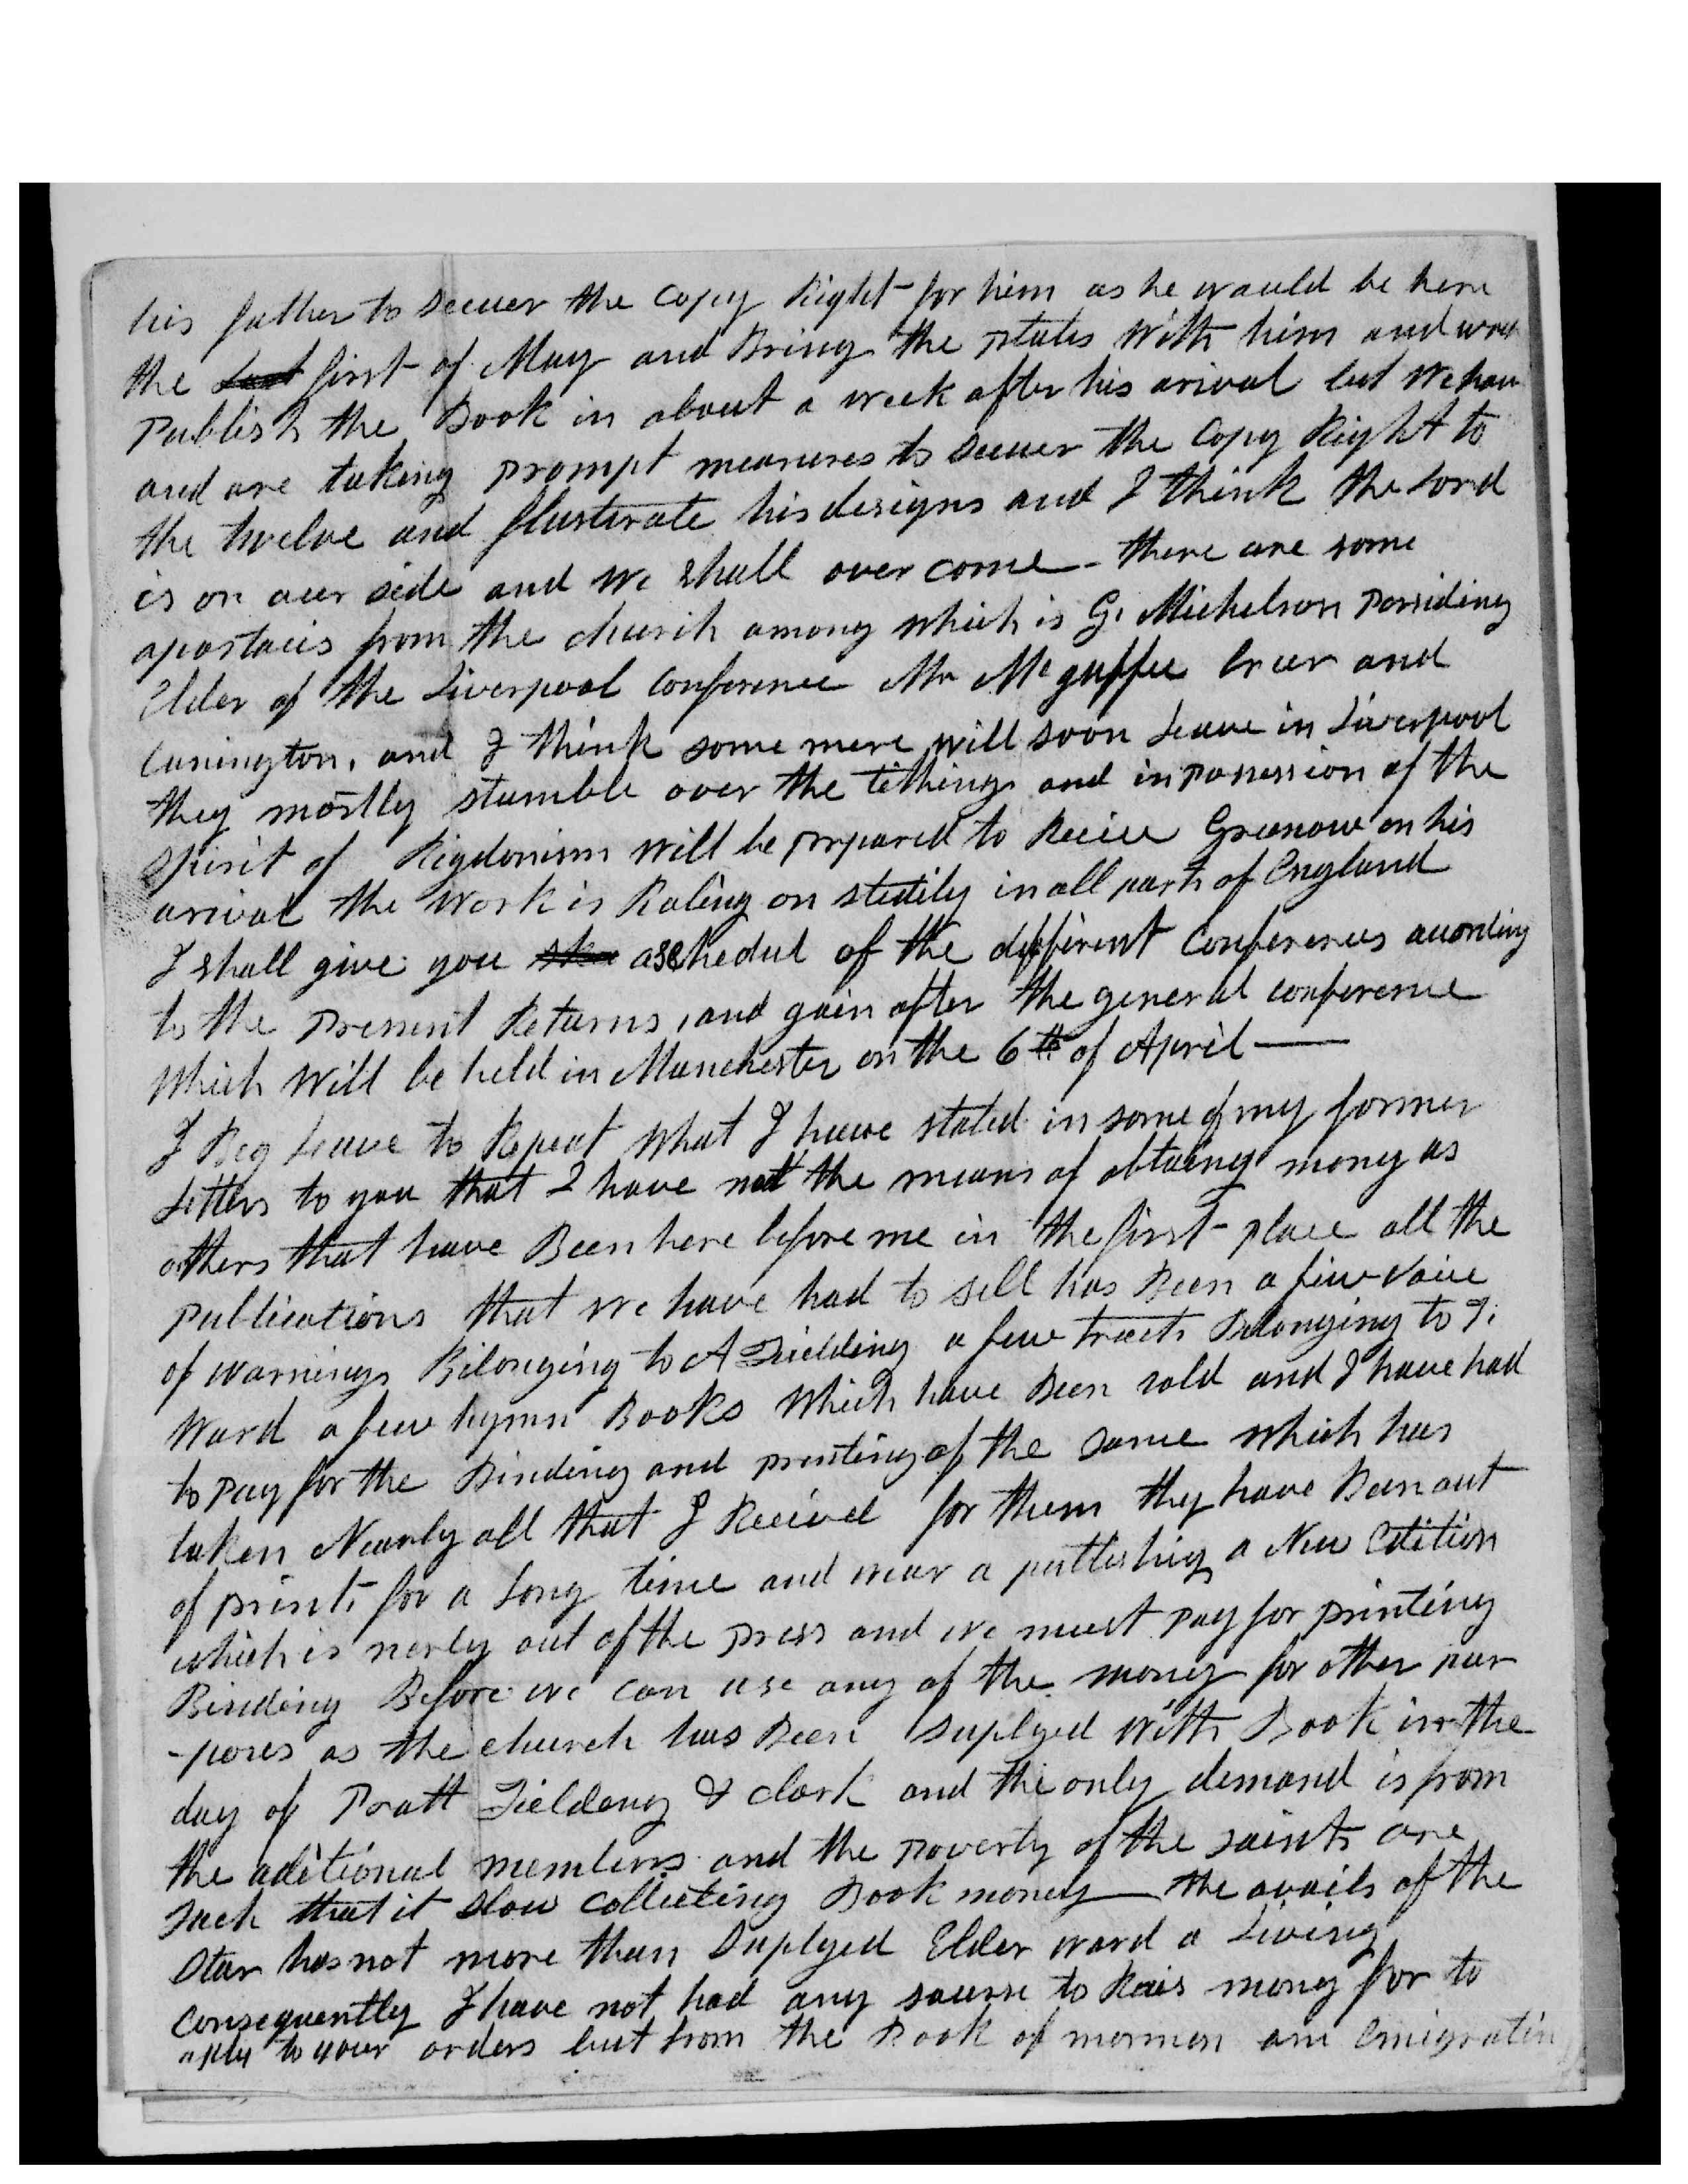 his father to secuer the Copy Right for him as he would be here
the Last first of May and Bring the plates With him and woud
Publish the Book in about a week after his arival but We have
and are taking prompt measures to secuer the Copy Right to
the twelve and flusterate his designs and I think the Lord
is on ouer side and We shall over come - there are some
apostacis from the church among which is G. Michelson Parsiding
Elder of the Liverpool Conference Mr Mcguffee Greer and
Cunington. and I think some more will soon Leave in Liverpool
they mostly stumble over the tithing and in possession of the
spirit of Rigdonism will be prpared to Recive Greenow on his
arival the Work is Roling on stedily in all parts of England
I shall give you ske a schedul of the different Conferences acording
to the Present Returns, and gain after the general conference
which Will be held in Manchester on the 6th of April —
I Beg Leave to Repeat What I have stated in some of my former
Letters to you that I have not the means of obtaing mony as
others that have Been here before me in the first place all the
Publications that We have had to sell has Been a few Voice
of Warnings Bilonging to A Fielding a few tracts Belonging to T.
Ward a few hymn Books Which have Been sold and I have had
to Pay for the Binding and printing of the same which has
taken Nearly all that I Recived for them they have Been out
of print for a Long time and wear a puttishing a New Edition
which is nerly out of the press and we must Pay for printing
Binding Before we can use any of the money for other pur
-poses as the church has Been suplyed With Book in the
day of Pratt Fieldang & Clark and the only demand is from
the aditional members and the poverty of the saints are
such that it slow Collecting Book money — the avails of the
Star has not more than Suplyed Elder Ward a Living
Consequently I have not had any sourse to Rais mony for to
aply to your orders but from the Book of mormon am Emigratin